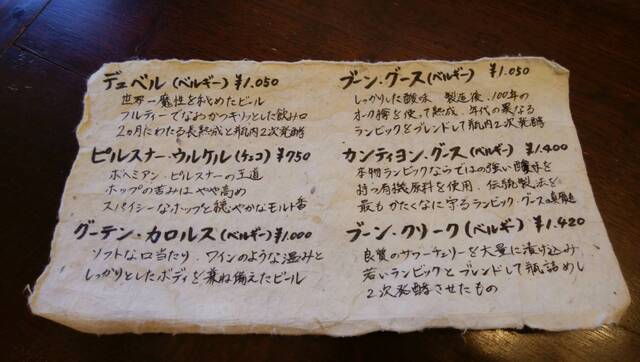 デュベル(ベルギー) ¥1.050
世界一魔性を秘めたビール
フルーティーでなおかつキリッとした飲み口
2ヵ月にわたる長熟成と瓶内2次発酵
ピルスナー・ウルケル(チェコ) ¥750
ボヘミアン・ピルスナーの王道
ホップの苦みはやや高め
スパイシーなホップと穏やかなモルト香
グーテン・カロルス(ベルギー) ¥1.000
ソフトな口当たり、ワインのような温みと
しっかりとしたボディを兼ね備えたビール
ブーン・グース(ベルギー) ¥1.050
しっかりした酸味 製造後、100年の
オーク樽を使って熟成、年代の異なる
ランビックをブレンドして瓶内2次発酵
カンティヨン・グース(ベルギー) ¥1.400
本物ランビックならではの強い酸味を
持つ有機原料を使用、伝統製法を
最もかたくなに守るランビック・グースの
ブーン・クリーク(ベルギー) ¥1.420
良質のサワーチェリーを大量に漬け込み
若いランビックとブレンドして瓶詰めし
2次発酵させたもの